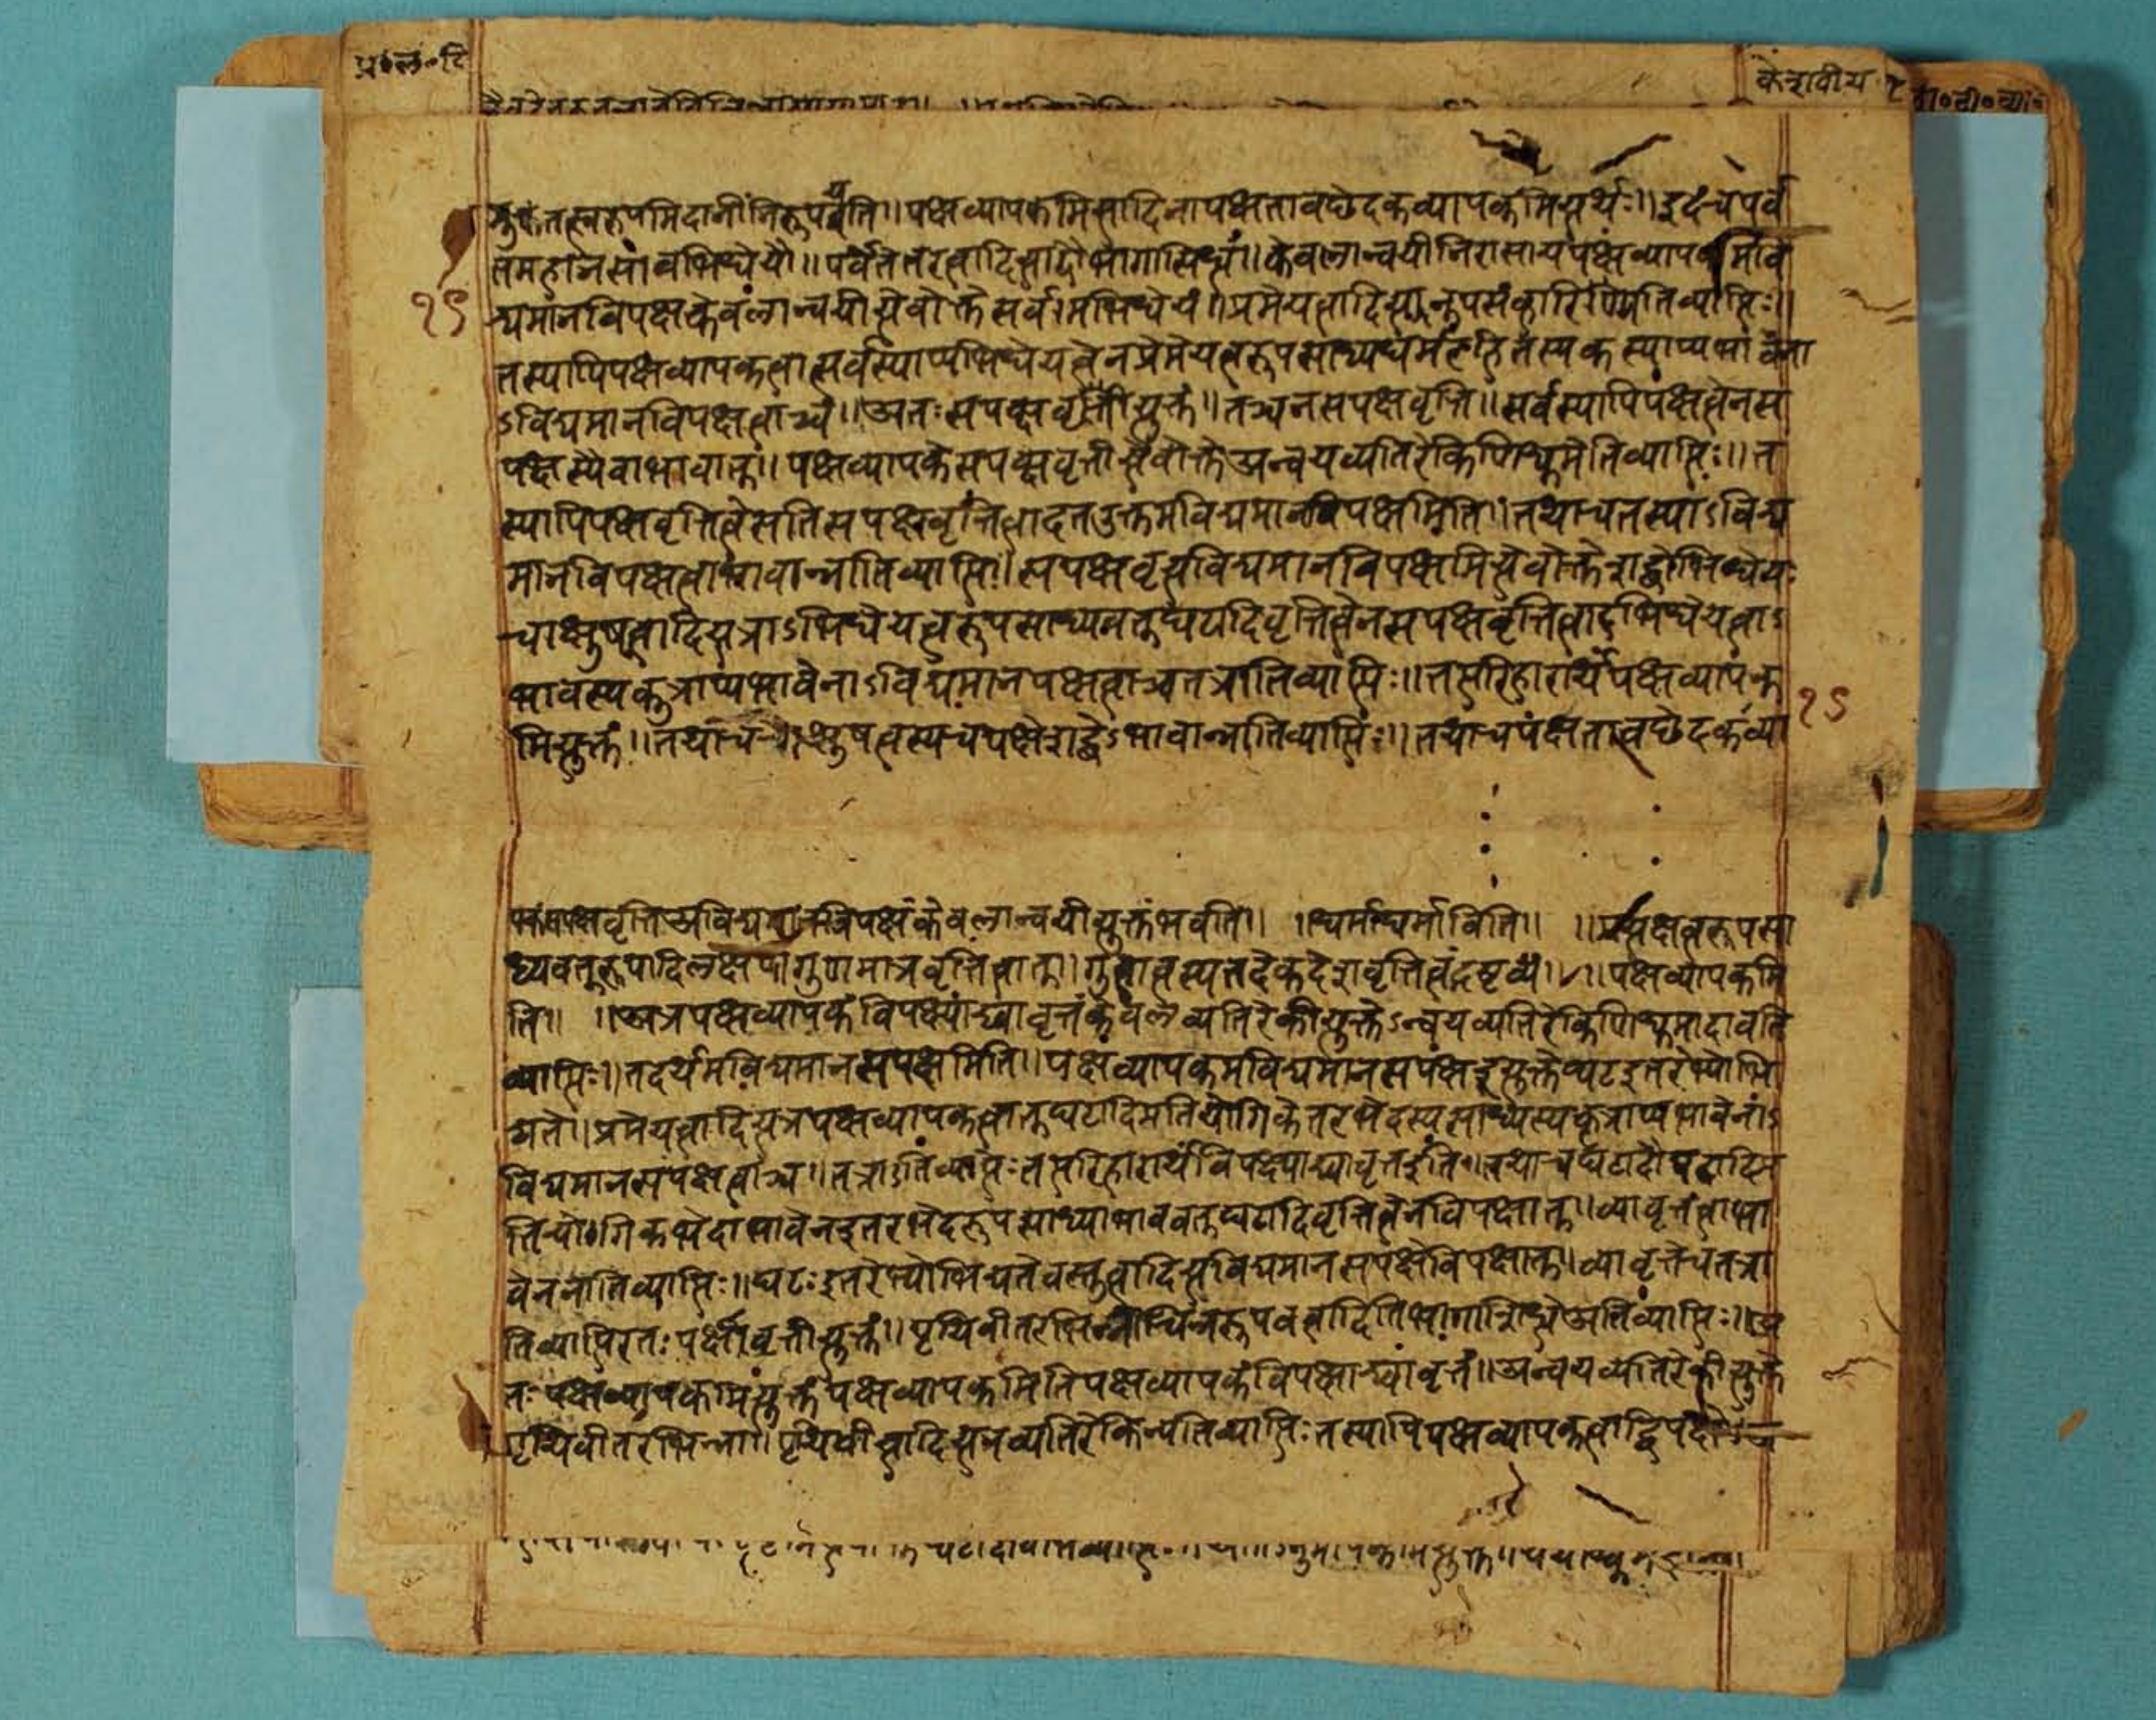 प्र॰ल॰टि
केशवीय
युक्तं तत्स्वरूपमिदानीं निरूपयति॥ पक्षव्यापकमित्यादिना पक्षतावछेदकव्यापकमित्यर्थः॥ इदं च पर्व
तमहानसावभिधेयौ॥ पर्वतेतरत्वादित्यादौ भागासिध्यं॥ केवलान्वयीनिरासाय पक्षव्यापकमवि
१९
द्यमानविपक्षकेवलान्वयीत्येवोक्ते सर्वमभिधेयं॥ प्रमेयत्वादित्यनुपसंहारिण्यतिव्याप्तिः॥
तस्यापि पक्षव्यापकत्वात्सर्वस्याप्यभिधेयत्वेन प्रमेयत्वरूपसाध्यधर्मरहितस्य कस्याप्यभावेना
ऽविद्यमानविपक्षत्वाच्च॥ अतः सपक्षवृत्तीत्युक्तं॥ तच्च न सपक्षवृत्ति॥ सर्वस्यापि पक्षत्वेन स
पक्षस्यैवाभावात्॥ पक्षव्यापकं सपक्षवृत्तीत्येवोक्ते अन्वयव्यतिरेकिणि धूमेतिव्याप्तिः॥ त
स्यापि पक्षवृत्तित्वे सति सपक्षवृत्तित्वादत उक्तमविद्यमानविपक्षमिति॥ तथा च तस्याऽविद्य
मानविपक्षत्वाभावान्नातिव्याप्तिः॥ सपक्षवृत्यविद्यमानविपक्षमित्येवोक्ते शब्दोभिधेयः
चाक्षुषत्वादित्यत्राऽभिधेयत्वरूपसाध्यवत् घटादिवृत्तित्वेन सपक्षवृत्तित्वादभिधेयत्वाऽ
भावस्य कुत्राप्यभावेनाऽविद्यमानपक्षत्वाच्च तत्रातिव्याप्तिः॥ तत्परिहारार्थं पक्षव्यापक
१९
मित्युक्तं॥ तथा च चाक्षुषत्वस्य च पक्षे शब्देऽभावान्नातिव्याप्तिः॥ तथा च पक्षतावछेदकव्या
पकंसपक्षवृत्ति अविद्यमानविपक्षं केवलान्वयीत्युक्तं भवति॥ ॥धर्माधर्माविति॥ ॥सपक्षत्वरूपसा
ध्यवत् रूपादिलक्षण गुणमात्रवृत्तित्वात्॥ गुणत्वस्य तदेकदेशवृत्तित्वं द्रष्टव्यं॥ ॥ पक्षव्यापकमि
ति॥ ॥अत्र पक्षव्यापकं विपक्षाद्व्यावृत्तं केवलव्यतिरेकीत्युक्तेऽन्वयव्यतिरेकिणि धूमादावति
व्याप्तिः॥ तदर्थमविद्यमानसपक्षमिति॥ पक्षव्यापकमविद्यमानसपक्ष इत्युक्ते घट इतरेभ्योभि
द्यते॥ प्रमेयत्वादित्यत्र पक्षव्यापकत्वात् घटादिप्रतियोगिकेतरभेदस्य साध्यस्य कुत्राप्यभावेनाऽ
विद्यमानसपक्षत्वाच्च॥ तत्राऽतिव्याप्तिः तत्परिहारार्थं विपक्षाद्व्यावृत्त इति॥ तथा च घटादौ घटादिप्र
तियोगिकभेदाभावेन इतरभेदरूपसाध्याभाववत् घटादिवृत्तित्वेन विपक्षात्॥ व्यावृत्तत्वाभा
वेन नातिव्याप्तिः॥ घटः इतरेभ्योभिद्यते वस्तुत्वादित्यविद्यमानसपक्षे विपक्षात्॥ व्यावृत्ते च तत्रा
तिव्याप्तिरतः पक्षवृत्तीत्युक्तं॥ पृथिवीतरभिन्ना रूपवत्वादिति भागासिद्धे अतिव्याप्तिः॥ अ
तः पक्षव्यापकमित्युक्तं पक्षव्यापकमिति पक्षव्यापकं विपक्षाद्व्यावृत्तं॥ अन्वयव्यतिरेकीत्युक्ते
पृथिवीतरभिन्ना॥ पृथिवीत्वादित्यत्र व्यतिरेकिन्यतिव्याप्तिः तस्यापि पक्षव्यापकत्वाद्विपक्षा